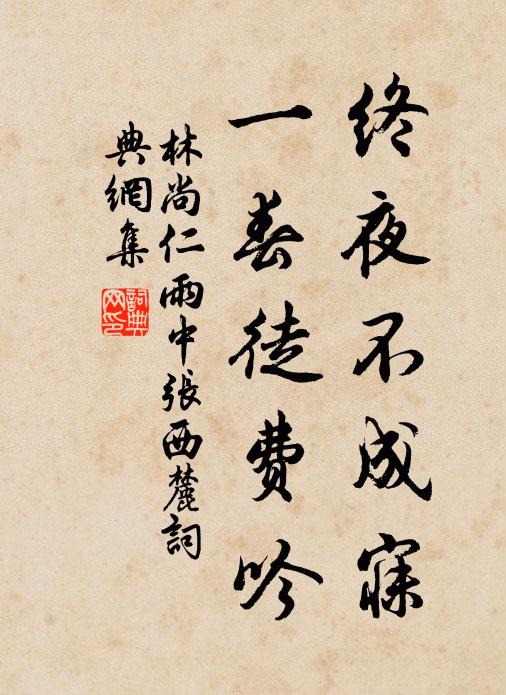 终夜不成寐
一春徒费吟
林尚仁雨中張西麓詞
典網集
詞典
网印